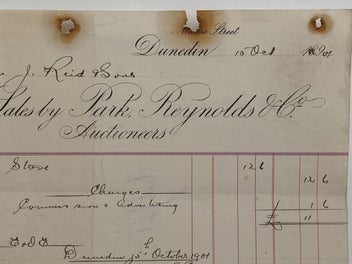 Street
Dunedin 15 Oct 1901
J. Reid & Sons
Sales by Park, Reynolds & Co
Auctioneers
Stove 12 6
12 6
Charges
Commission & Advertising 1 6
£ 11
E & O E
Dunedin 15th October 1901